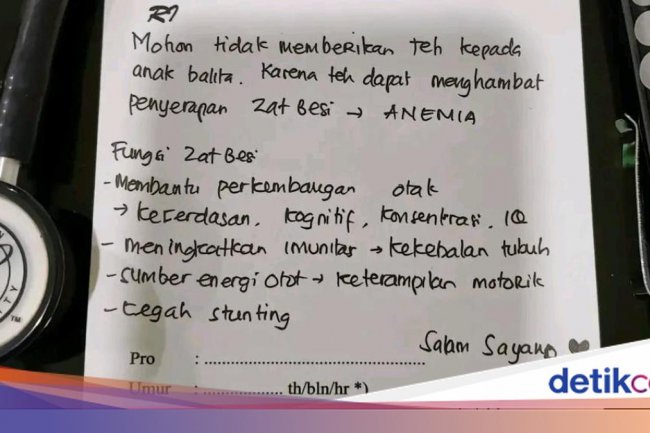 R/
Mohon tidak memberikan teh kepada
anak balita. Karena teh dapat menghambat
penyerapan Zat Besi → ANEMIA
Fungsi Zat Besi
- Membantu perkembangan otak
→ kecerdasan, kognitif, konsentrasi, IQ
- meningkatkan imunitas → kekebalan tubuh
- sumber energi otot → keterampilan motorik
- cegah stunting
Salam Sayang ♥
Pro : ..........................................................
Umur : .................... th/bln/hr *)
detikco